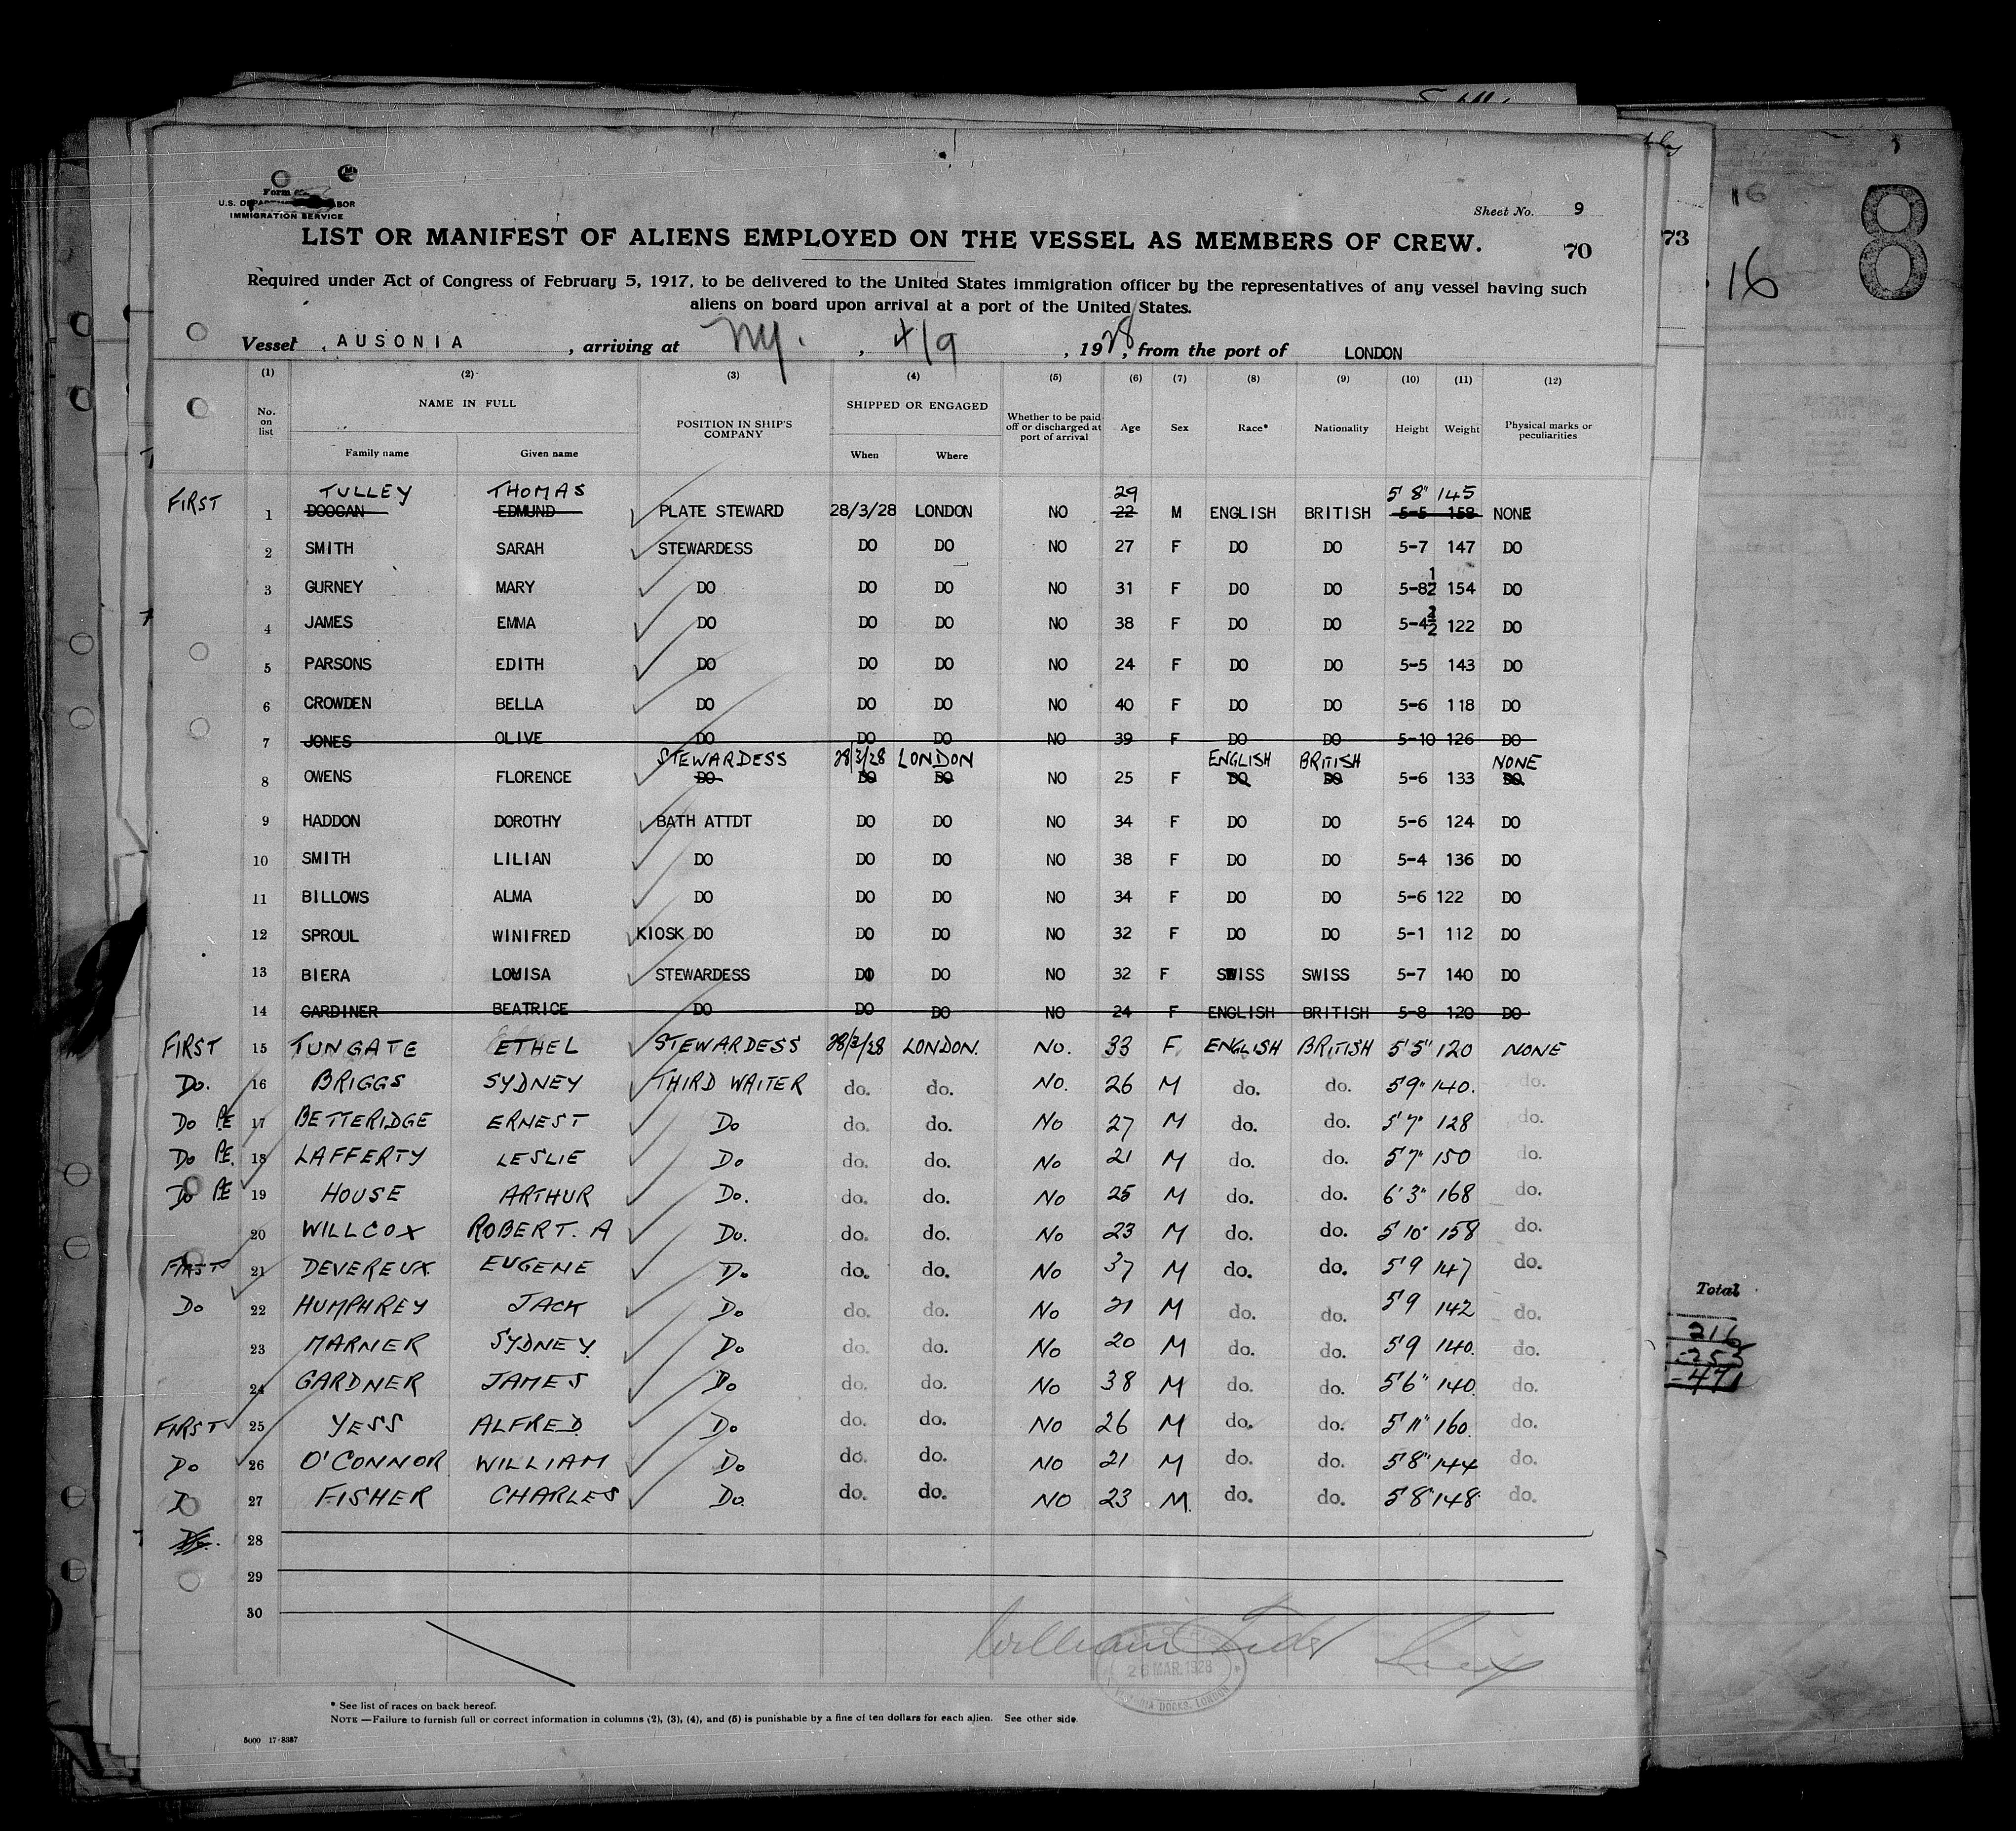 U.S. DEPARTMENT LABOR
IMMIGRATION SERVICE
Sheet No. 9
LIST OR MANIFEST OF ALIENS EMPLOYED ON THE VESSEL AS MEMBERS OF CREW.
70
73
16
16
8
Required under Act of Congress of February 5, 1917, to be delivered to the United States immigration officer by the representatives of any vessel having such
aliens on board upon arrival at a port of the United States.
Vessel AUSONIA, arriving at NY., 4/9, 1928, from the port of LONDON
(1) (2) (3) (4) (5) (6) (7) (8) (9) (10) (11) (12)
No. on list NAME IN FULL POSITION IN SHIP'S COMPANY SHIPPED OR ENGAGED Whether to be paid off or discharged at port of arrival Age Sex Race* Nationality Height Weight Physical marks or peculiarities
Family name Given name When Where
TULLEY THOMAS 29 5' 8" 145
FIRST 1 DOOGAN EDMUND PLATE STEWARD 28/3/28 LONDON NO 22 M ENGLISH BRITISH 5-5 158 NONE
2 SMITH SARAH STEWARDESS DO DO NO 27 F DO DO 5-7 147 DO
3 GURNEY MARY DO DO DO NO 31 F DO DO 5-8½ 154 DO
4 JAMES EMMA DO DO DO NO 38 F DO DO 5-4½ 122 DO
5 PARSONS EDITH DO DO DO NO 24 F DO DO 5-5 143 DO
6 CROWDEN BELLA DO DO DO NO 40 F DO DO 5-6 118 DO
7 JONES OLIVE DO DO DO NO 39 F DO DO 5-10 126 DO
STEWARDESS 28/3/28 LONDON ENGLISH BRITISH NONE
8 OWENS FLORENCE DO DO DO NO 25 F DO DO 5-6 133 DO
9 HADDON DOROTHY BATH ATTDT DO DO NO 34 F DO DO 5-6 124 DO
10 SMITH LILIAN DO DO DO NO 38 F DO DO 5-4 136 DO
11 BILLOWS ALMA DO DO DO NO 34 F DO DO 5-6 122 DO
12 SPROUL WINIFRED KIOSK DO DO DO NO 32 F DO DO 5-1 112 DO
13 BIERA LOUISA STEWARDESS DO DO NO 32 F SWISS SWISS 5-7 140 DO
14 GARDINER BEATRICE DO DO DO NO 24 F ENGLISH BRITISH 5-8 120 DO
FIRST 15 TUNGATE ETHEL STEWARDESS 28/3/28 LONDON. NO. 33 F. ENGLISH BRITISH 5'5" 120 NONE
Do. 16 BRIGGS SYDNEY THIRD WAITER do. do. NO. 26 M do. do. 5'9" 140. do.
Do PE 17 BETTERIDGE ERNEST Do do. do. NO 27 M do. do. 5'7" 128 do.
Do PE. 18 LAFFERTY LESLIE Do do. do. No 21 M do. do. 5'7" 150 do.
Do PE 19 HOUSE ARTHUR Do. do. do. No 25 M do. do. 6'3" 168 do.
20 WILLCOX ROBERT. A Do. do. do. No 23 M do. do. 5'10" 158 do.
FIRST 21 DEVEREUX EUGENE Do do. do. No 37 M do. do. 5'9 147 do.
Do 22 HUMPHREY JACK Do do. do. No 21 M do. do. 5'9 142 do.
23 MARNER SYDNEY Do do. do. No 20 M do. do. 5'9 140. do.
24 GARDNER JAMES Do do. do. No 38 M do. do. 5'6" 140. do.
FIRST 25 YESS ALFRED Do do. do. NO 26 M do. do. 5'11" 160. do.
Do 26 O'CONNOR WILLIAM Do do. do. NO 21 M do. do. 5'8" 144 do.
D 27 FISHER CHARLES Do do. do. NO 23 M. do. do. 5'8" 148 do.
28
29
30
Total
216
255
471
William
MAR. 1928
DOCKS, LONDON
* See list of races on back hereof.
NOTE —Failure to furnish full or correct information in columns (2), (3), (4), and (5) is punishable by a fine of ten dollars for each alien. See other side.
5000 17-8387